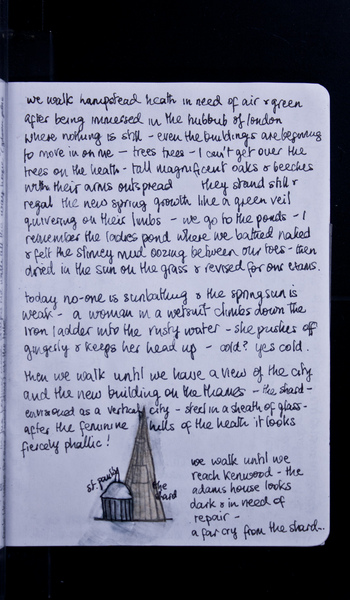 we walk hampstead heath in need of air & green
after being immersed in the hubbub of london
where nothing is still - even the buildings are beginning
to move in on me - trees trees - I can't get over the
trees on the heath - tall magnificent oaks & beeches
with their arms outspread they stand still &
regal the new spring growth like a green veil
quivering on their limbs - we go to the ponds - I
remember the ladies pond where we bathed naked
& felt the slimey mud oozing between our toes - then
dried in the sun on the grass & revised for our exams.
today no-one is sunbathing & the spring sun is
weak - a woman in a wetsuit climbs down the
iron ladder into the rusty water - she pushes off
gingerly & keeps her head up - cold? yes cold.
then we walk until we have a view of the city
and the new building on the thames - the shard -
envisioned as a vertical city - steel in a sheath of glass -
after the feminine hills of the heath it looks
fiercely phallic!
st. pauls
the
shard
we walk until we
reach Kenwood - the
adams house looks
dark & in need of
repair -
a far cry from the shard...